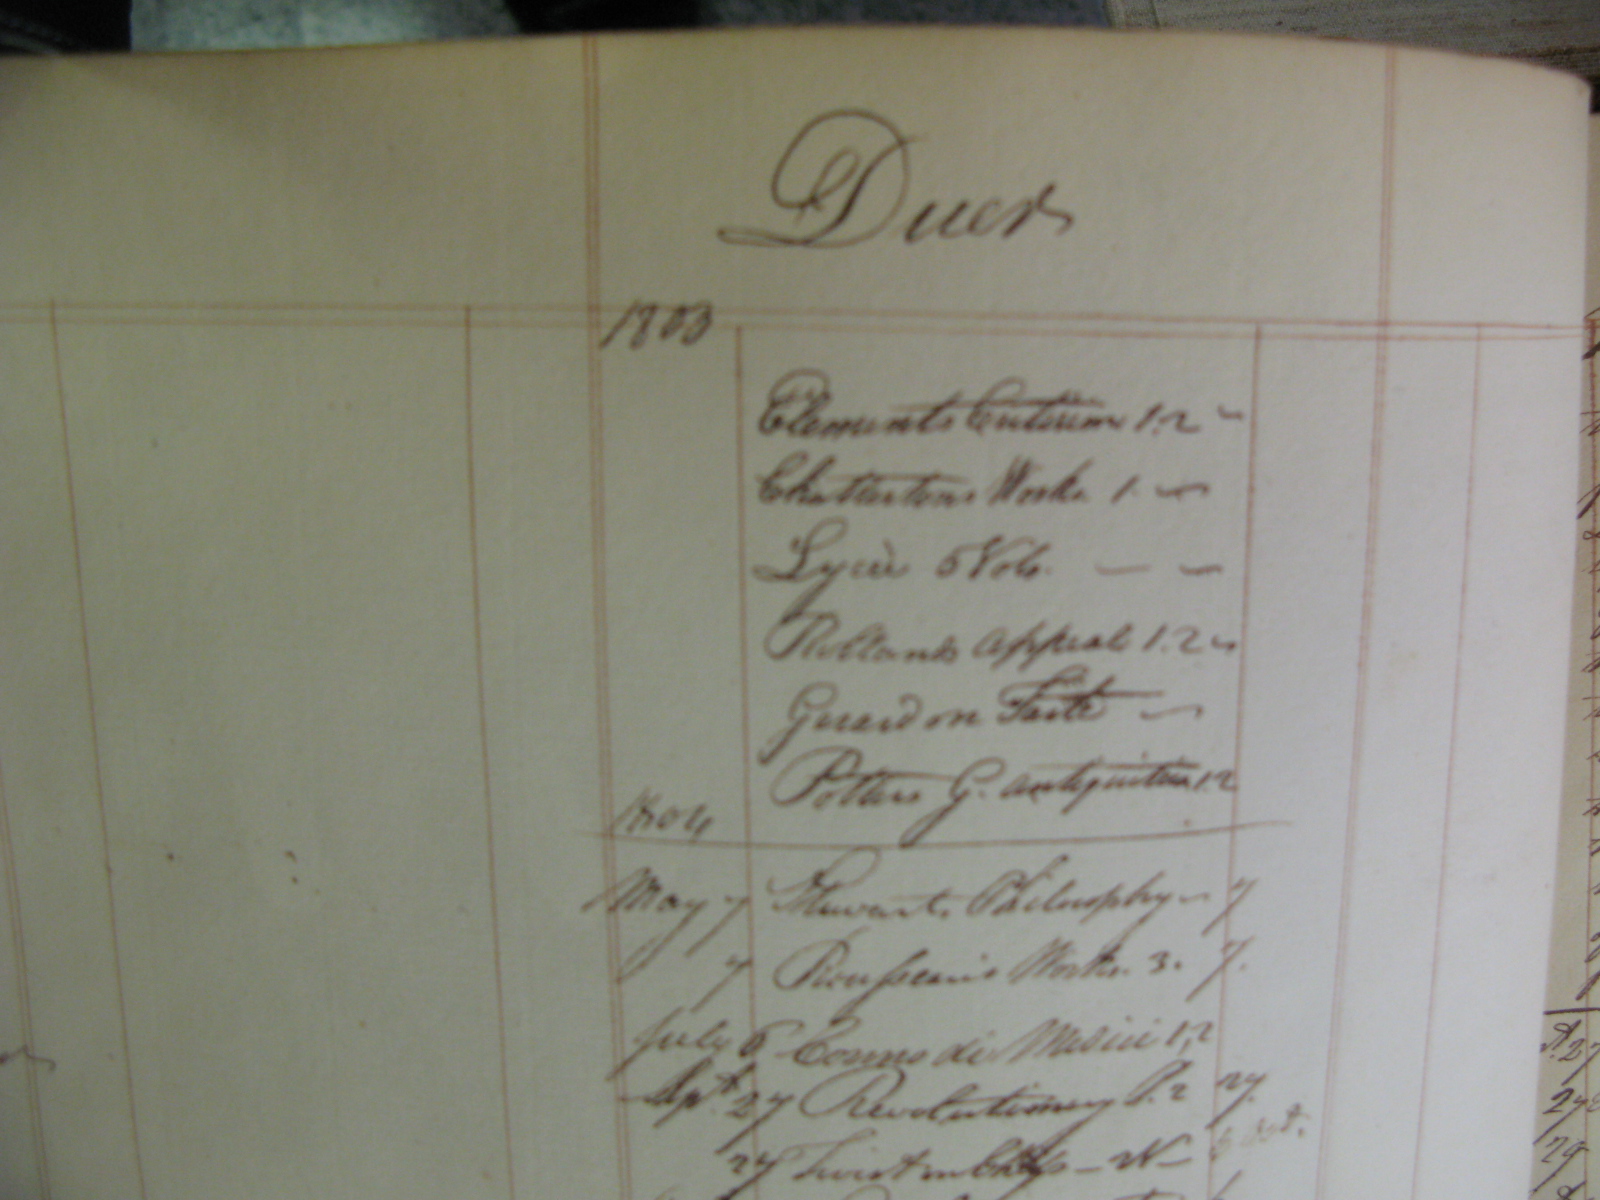 Duer
1803
Elements Criticism 1.2
Chattertons Works 1.
Lycée 5 Vols.
Rollands Appeal 1.2
Gerard on Taste
Potters G. Antiquities 1.2
1804
May 7 Stewarts Philosophy 7
7 Rousseau's Works 3. 7.
July 6 Cosmo de Medici 1,2
Sept. 27 Revolutionary P. 2 27.
27